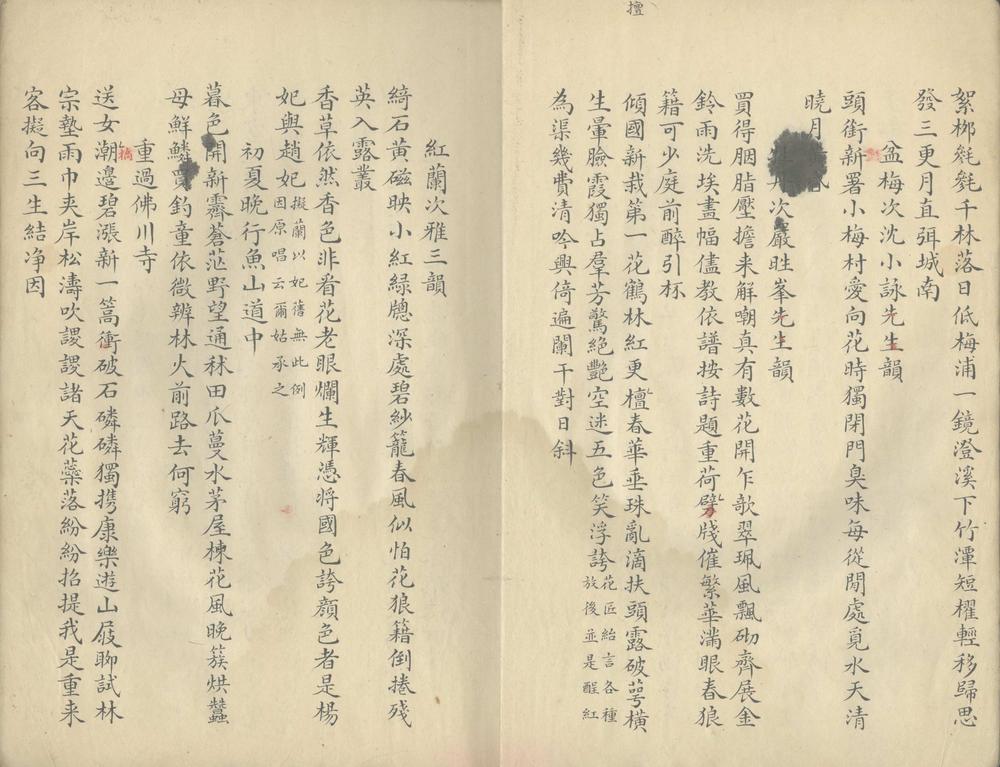 檀
絮桞毿毿千林落日低梅浦一鏡澄溪下竹潭短櫂輕移歸思
發三更月直弭城南
盆梅次沈小詠先生韻
頭銜新署小梅村愛向花時獨閉門臭味每從閒處覓水天清
曉月
次嚴眭峯先生韻
買得胭脂壓擔来解嘲真有數花開乍歌翠珮風飄砌齊展金
鈴雨洗埃畫幅儘教依譜按詩題重荷劈牋催繁華滿眼春狼
籍可少庭前醉引杯
傾國新栽第一花鶴林紅更檀春華垂珠亂滴扶頭露破萼橫
生暈臉霞獨占羣芳驚絕艷空迷五色笑浮誇花匠紿言各種
放後並是醒紅
為渠幾費清吟興倚遍闌干對日斜
紅蘭次雅三韻
綺石黄磁映小紅綠牕深處碧紗籠春風似怕花狼籍倒捲殘
英入露叢
香草依然香色非看花老眼爛生輝憑将國色誇顔色者是楊
妃與趙妃擬蘭以妃舊無此例
因原唱云爾姑承之
初夏晚行魚山道中
暮色開新霽蒼茫野望通秫田瓜蔓水茅屋楝花風晚簇烘蠶
母鮮鱗買釣童依微辨林火前路去何窮
重過佛川寺
送女潮橋邊碧漲新一篙衝破石磷磷獨携康樂遊山屐聊試林
宗墊雨巾夹岸松濤吹謖謖諸天花蘂落紛紛招提我是重来
客擬向三生結净因